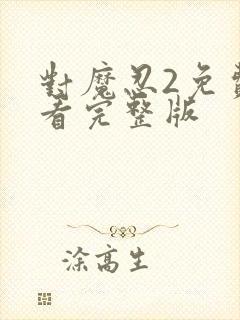 對魔忍2免費
看完整版
涂高生